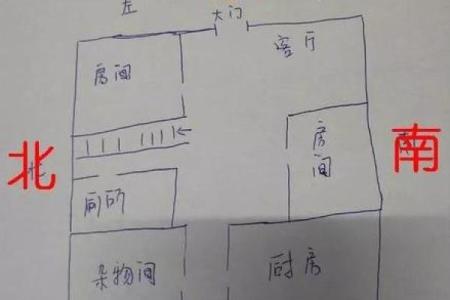 左
大门
客厅
房间
北
北
房间
南
厕所
杂物间
厨房